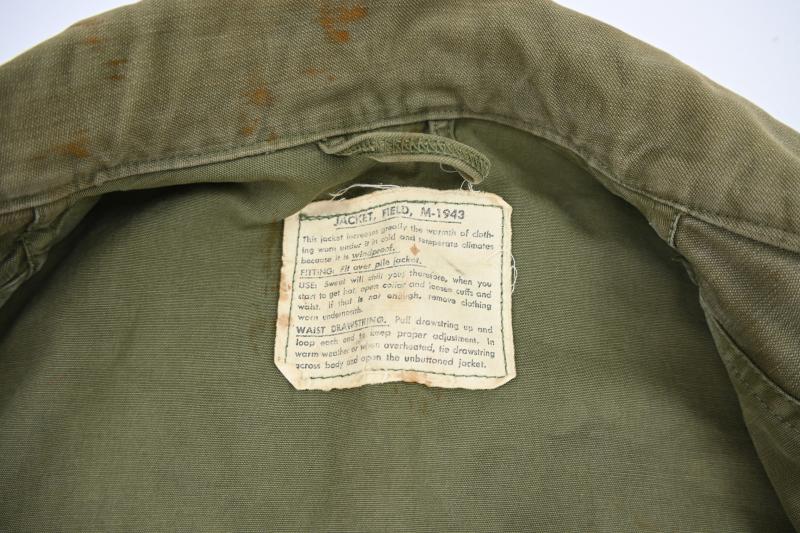 JACKET, FIELD, M-1943
This jacket increases greatly the warmth of cloth-
ing worn under it in cold and temperate climates
because it is windproof.
FITTING: Fit over pile jacket.
USE: Sweat will chill you; therefore, when you
start to get hot, open collar and loosen cuffs and
waist. If that is not enough, remove clothing
worn underneath.
WAIST DRAWSTRING. Pull drawstring up and
loop each end to keep proper adjustment. In
warm weather or when overheated, tie drawstring
across body and open the unbuttoned jacket.